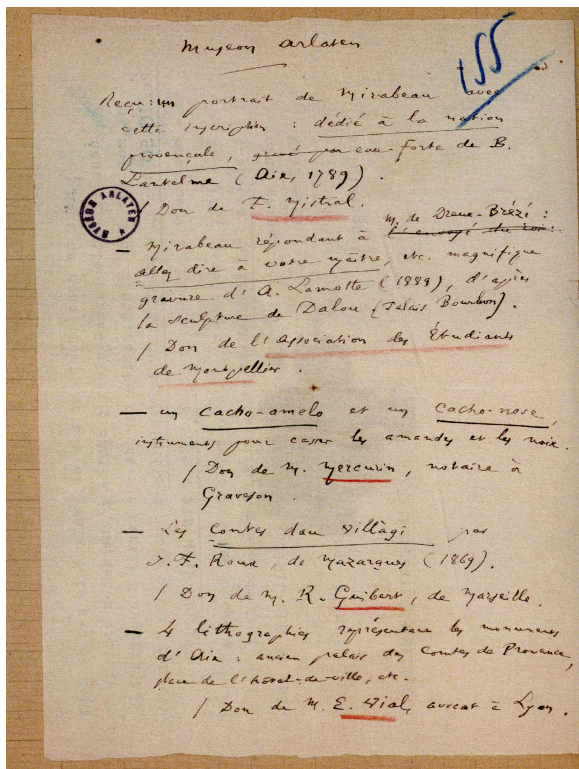 Museon Arlaten
155
Reçu : un portrait de Mirabeau avec
cette inscription : dédié à la nation
provençale, gravé par eau-forte de B.
Lantelme (Aix, 1789).
/ Don de F. Mistral.
MUSEON ARLATEN
M. de Dreux-Brézé :
— Mirabeau répondant à l'envoyé du roi :
allez dire à votre maître, etc. magnifique
gravure d'A. Lamotte (1889), d'après
la sculpture de Dalou (Palais Bourbon).
/ Don de l'Association des Étudiants
de Montpellier.
— un cacho-amelo et un cacho-nose,
instruments pour casser les amandes et les noix.
/ Don de M. Mercurin, notaire à
Graveson
— Les Contes dau villàgi par
J. F. Roux, de Mazargues (1869).
/ Don de M. R. Guibert, de Marseille.
— 4 lithographies représentant les monuments
d'Aix : ancien palais des Comtes de Provence,
place de l'hôtel-de-ville, etc.
/ Don de M. E. Vial, avocat à Lyon.